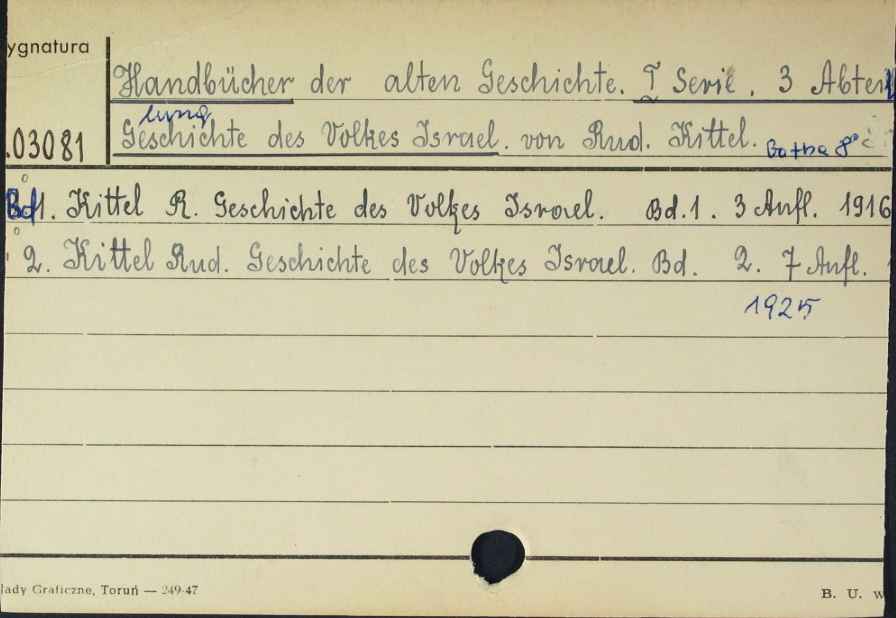 ygnatura
Handbücher der alten Geschichte. I Serie. 3 Abtei
lung
.03081 Geschichte des Volkes Israel. von Rud. Kittel. Gotha 8°
Bd 1. Kittel R. Geschichte des Volkes Israel. Bd. 1. 3 Aufl. 1916
2. Kittel Rud. Geschichte des Volkes Israel. Bd. 2. 7 Aufl.
1925
lady Graficzne, Toruń — 249-47
B. U. w